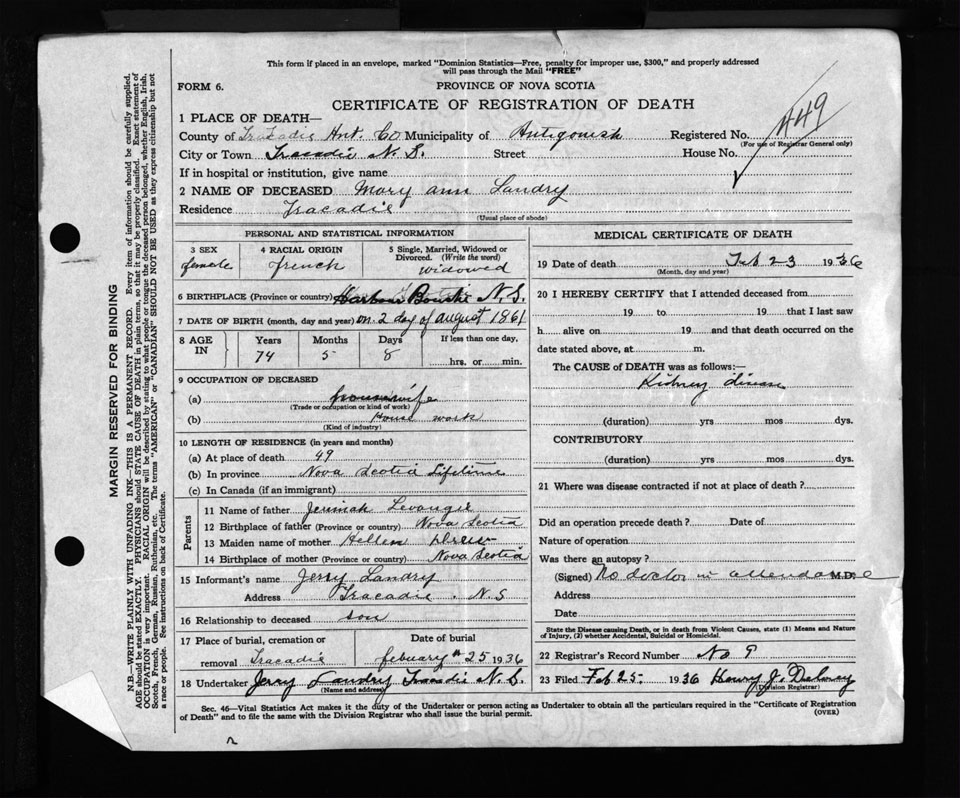 This form if placed in an envelope, marked "Dominion Statistics—Free, penalty for improper use, $300," and properly addressed
will pass through the Mail "FREE"
FORM 6.
PROVINCE OF NOVA SCOTIA
CERTIFICATE OF REGISTRATION OF DEATH
1 PLACE OF DEATH—
County of Tracadie Ant. Co Municipality of Antigonish Registered No. 449
(For use of Registrar General only)
City or Town Tracadie N.S. Street House No.
If in hospital or institution, give name
2 NAME OF DECEASED Mary ann Landry
Residence Tracadie
(Usual place of abode)
PERSONAL AND STATISTICAL INFORMATION
3 SEX
female
4 RACIAL ORIGIN
french
5 Single, Married, Widowed or
Divorced. (Write the word)
widowed
6 BIRTHPLACE (Province or country) Harbour Bouche N.S.
7 DATE OF BIRTH (month, day and year) on 2 day of august 1861
8 AGE IN
Years Months Days If less than one day,
74 5 8
hrs. or min.
9 OCCUPATION OF DECEASED
(a) housewife
(Trade or occupation or kind of work)
(b) House work
(Kind of industry)
10 LENGTH OF RESIDENCE (in years and months)
(a) At place of death 49
(b) In province Nova Scotia Lifetime
(c) In Canada (if an immigrant)
Parents
11 Name of father Jerimah
12 Birthplace of father (Province or country) Nova Scotia
13 Maiden name of mother Hellen
14 Birthplace of mother (Province or country) Nova Scotia
15 Informant's name Jerry Landry
Address Tracadie. N.S
16 Relationship to deceased son
17 Place of burial, cremation or Date of burial
removal Tracadie febuary 25 1936
18 Undertaker Jerry Landry Tracadie N.S.
(Name and address)
MEDICAL CERTIFICATE OF DEATH
19 Date of death Feb 23 1936
(Month, day and year)
20 I HEREBY CERTIFY that I attended deceased from
19 to 19 that I last saw
h alive on 19 and that death occurred on the
date stated above, at m.
The CAUSE of DEATH was as follows:—
Kidney disease
(duration) yrs mos dys.
CONTRIBUTORY
(duration) yrs mos dys.
21 Where was disease contracted if not at place of death?
Did an operation precede death? Date of
Nature of operation
Was there an autopsy?
(Signed) No doctor in attendance M.D.
Address
Date
State the Disease causing Death, or in death from Violent Causes, state (1) Means and Nature
of Injury, (2) whether Accidental, Suicidal or Homicidal.
22 Registrar's Record Number No 9
23 Filed Feb 25 1936 Henry J. Delorey
(Division Registrar)
Sec. 46—Vital Statistics Act makes it the duty of the Undertaker or person acting as Undertaker to obtain all the particulars required in the "Certificate of Registration
of Death" and to file the same with the Division Registrar who shall issue the burial permit.
(OVER)
MARGIN RESERVED FOR BINDING
N.B.—WRITE PLAINLY WITH UNFADING INK—THIS IS A PERMANENT RECORD. Every item of information should be carefully supplied.
AGE should be stated EXACTLY. PHYSICIANS should STATE CAUSE OF DEATH in plain terms, so that it may be properly classified. Exact statement of
OCCUPATION is very important. RACIAL ORIGIN will be described by stating to what people or tongue the deceased person belonged, whether English, Irish,
Scotch, French, German, Russian, Ruthenian, etc. The terms "AMERICAN" or "CANADIAN" SHOULD NOT BE USED as they express citizenship but not
a race or people. See instructions on back of Certificate.